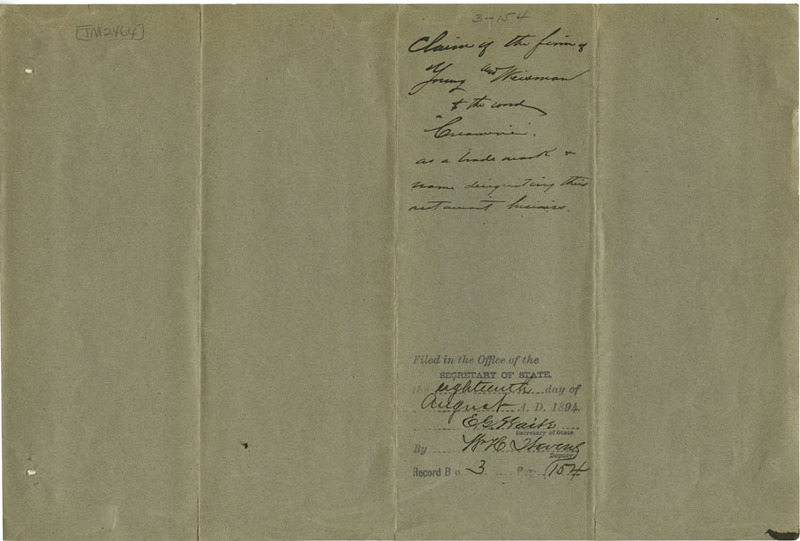 [TM2464]
3-154
Claim of the firm of
Young and Weisman
to the word
"Creamerie".
as a trade mark &
name designating their
restaurant business.
Filed in the Office of the
SECRETARY OF STATE,
the eighteenth day of
August A. D. 1894.
E G Waite
Secretary of State
By W H Stevens
Deputy
Record B o 3 P 154